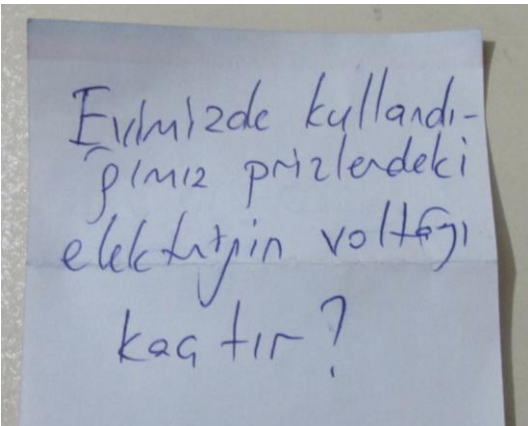 Evimizde kullandı-
ğımız prizlerdeki
elektriğin voltajı
kaç tır?